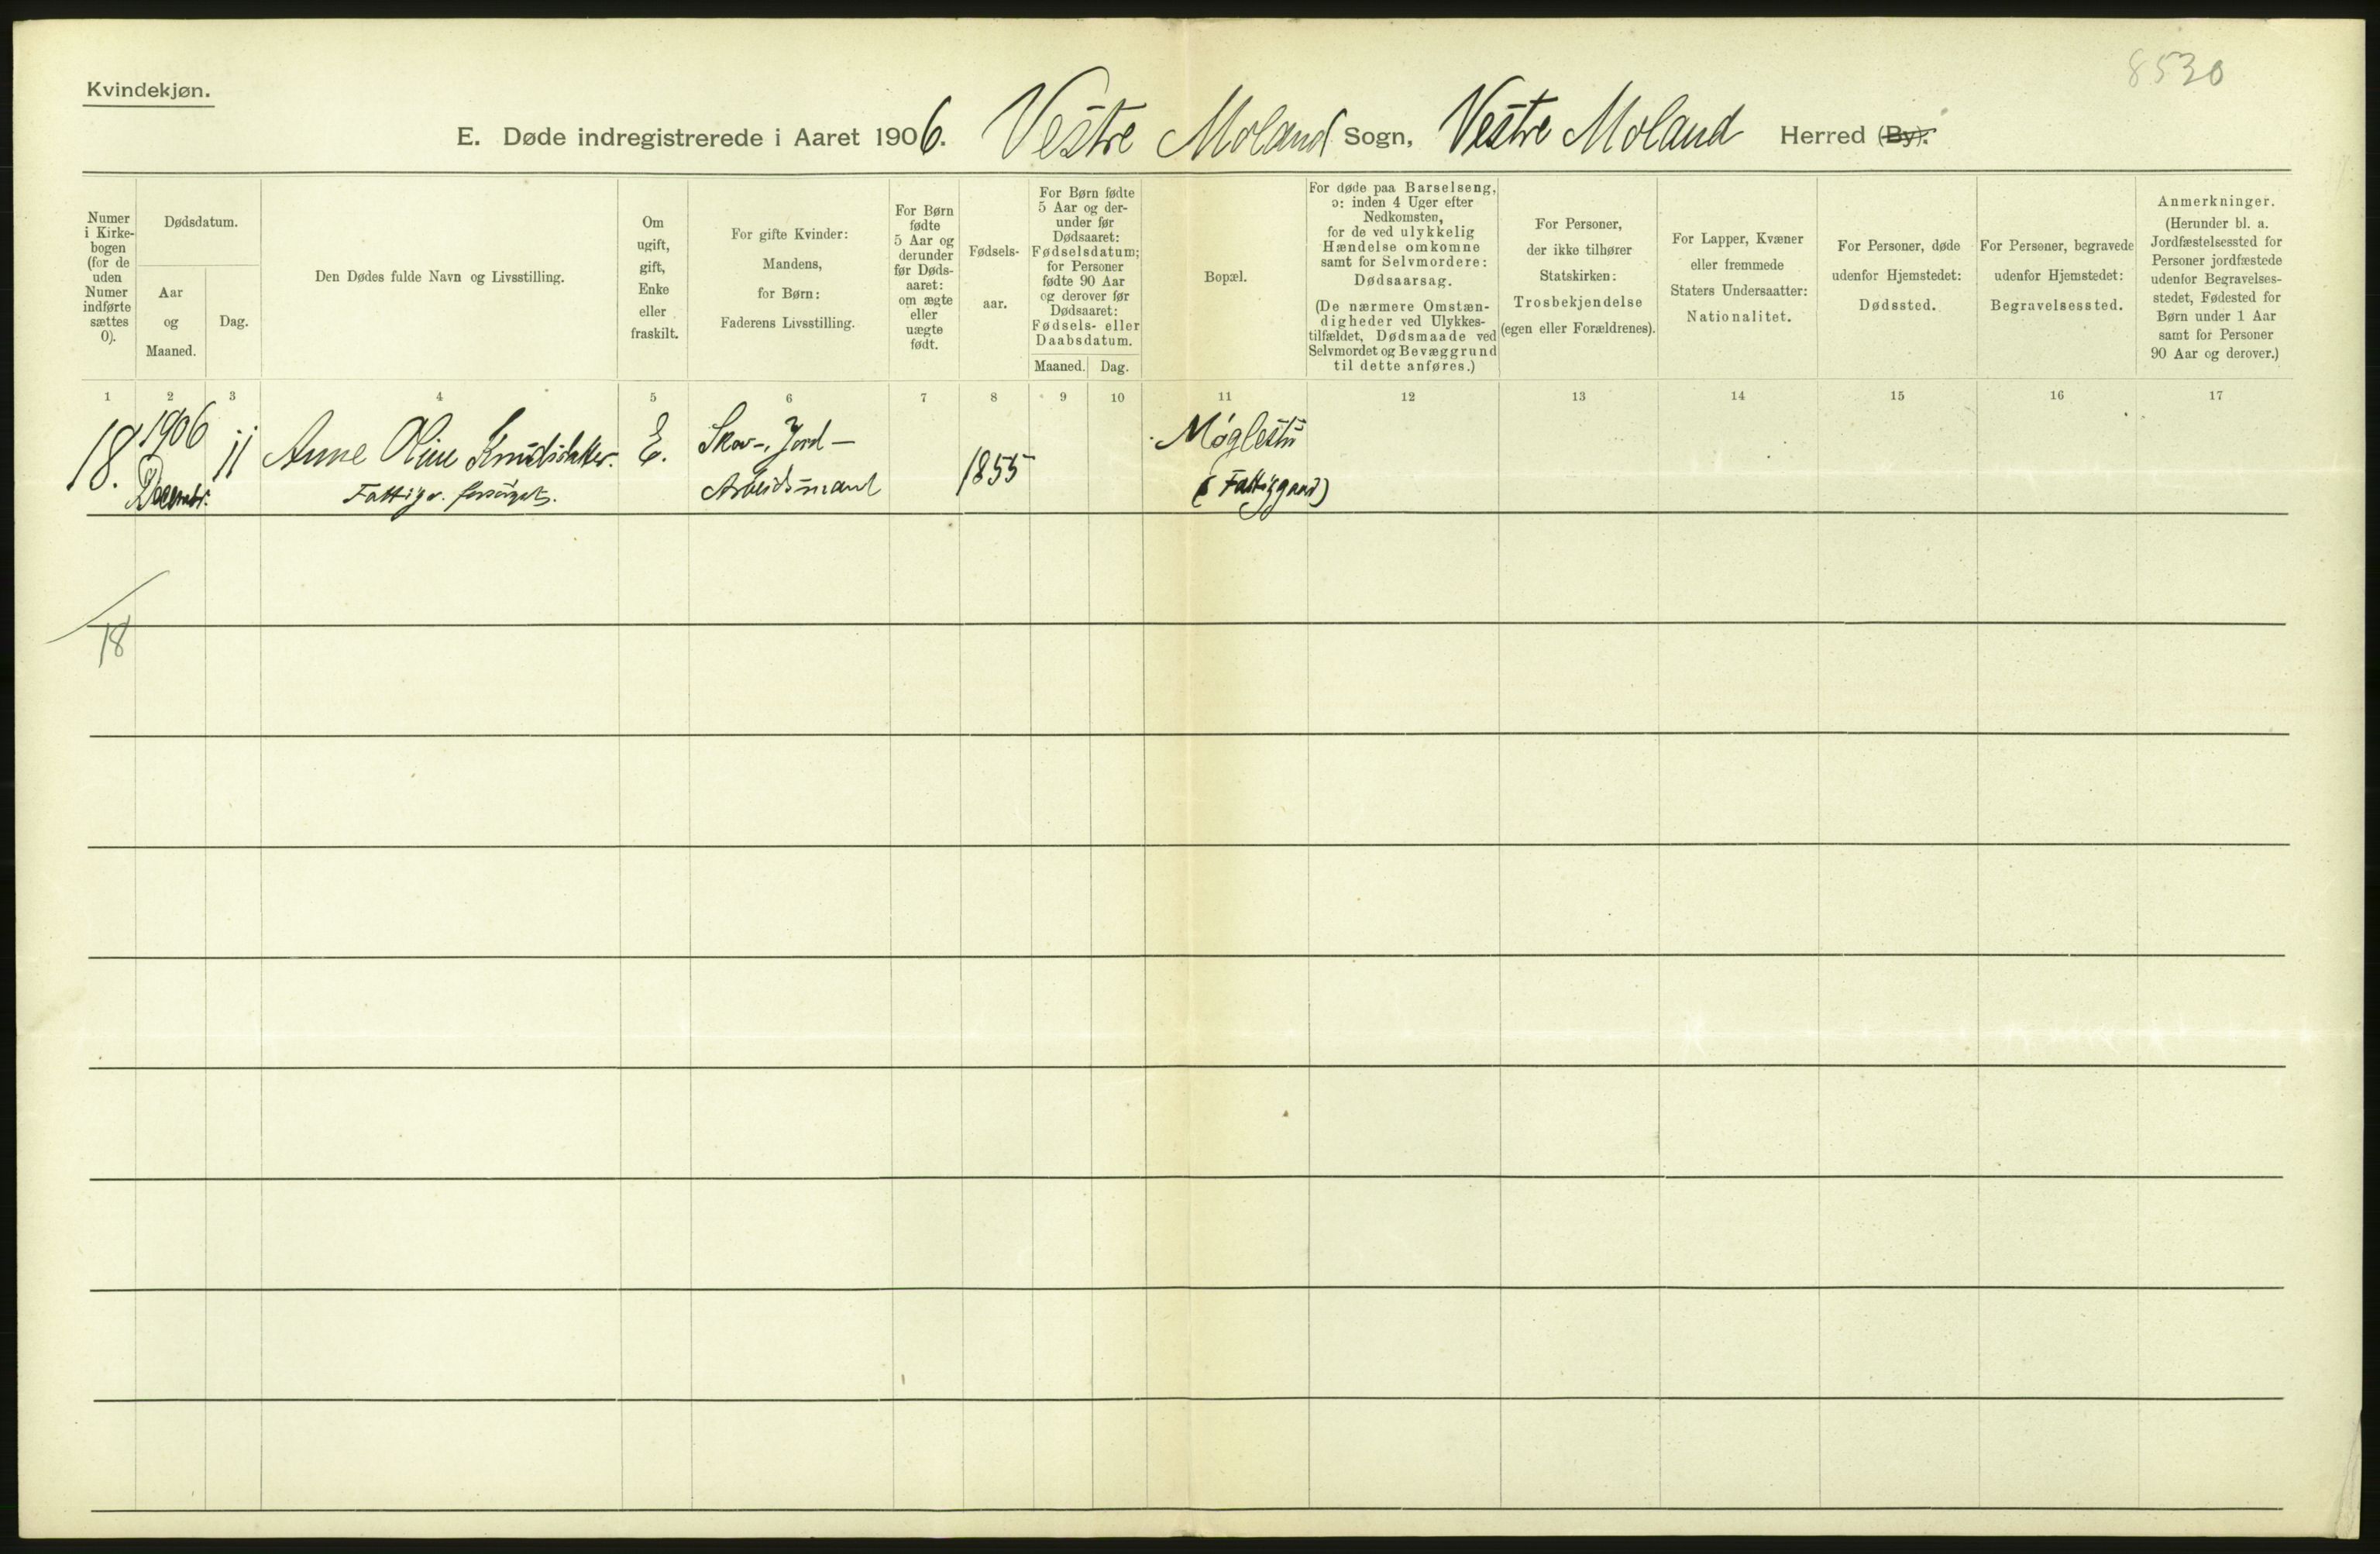 8530
Kvindekjøn.
E. Døde indregistrerede i Aaret 1906. Vestre Moland Sogn, Vestre Moland Herred (By).
Numer
i Kirke-
bogen
(for de
uden
Numer
indførte
sættes
0).
Dødsdatum.
Aar
og
Maaned.
Dag.
Den Dødes fulde Navn og Livsstilling.
Om
ugift,
gift,
Enke
eller
fraskilt.
For gifte Kvinder:
Mandens,
for Børn:
Faderens Livsstilling.
For Børn
fødte
5 Aar og
derunder
før Døds-
aaret:
om ægte
eller
uægte
født.
Fødsels-
aar.
For Børn fødte
5 Aar og der-
under før
Dødsaaret:
Fødselsdatum;
for Personer
fødte 90 Aar
og derover før
Dødsaaret:
Fødsels- eller
Daabsdatum.
Maaned.
Dag.
Bopæl.
For døde paa Barselseng,
ɔ: inden 4 Uger efter
Nedkomsten,
for de ved ulykkelig
Hændelse omkomne
samt for Selvmordere:
Dødsaarsag.
(De nærmere Omstæn-
digheder ved Ulykkes-
tilfældet, Dødsmaade ved
Selvmordet og Bevæggrund
til dette anføres.)
For Personer,
der ikke tilhører
Statskirken:
Trosbekjendelse
(egen eller Forældrenes).
For Lapper, Kvæner
eller fremmede
Staters Undersaatter:
Nationalitet.
For Personer, døde
udenfor Hjemstedet:
Dødssted.
For Personer, begravede
udenfor Hjemstedet:
Begravelsessted.
Anmerkninger.
(Herunder bl. a.
Jordfæstelsessted for
Personer jordfæstede
udenfor Begravelses-
stedet, Fødested for
Børn under 1 Aar
samt for Personer
90 Aar og derover.)
1 2 3 4 5 6 7 8 9 10 11 12 13 14 15 16 17
18.
1906
Decembr.
11
Anne Oline Knudsdatter.
Fattigv. forsørget.
E.
Skov-, Jord-
Arbeidsmand
1855
Møglestu
(Fattiggaard)
18